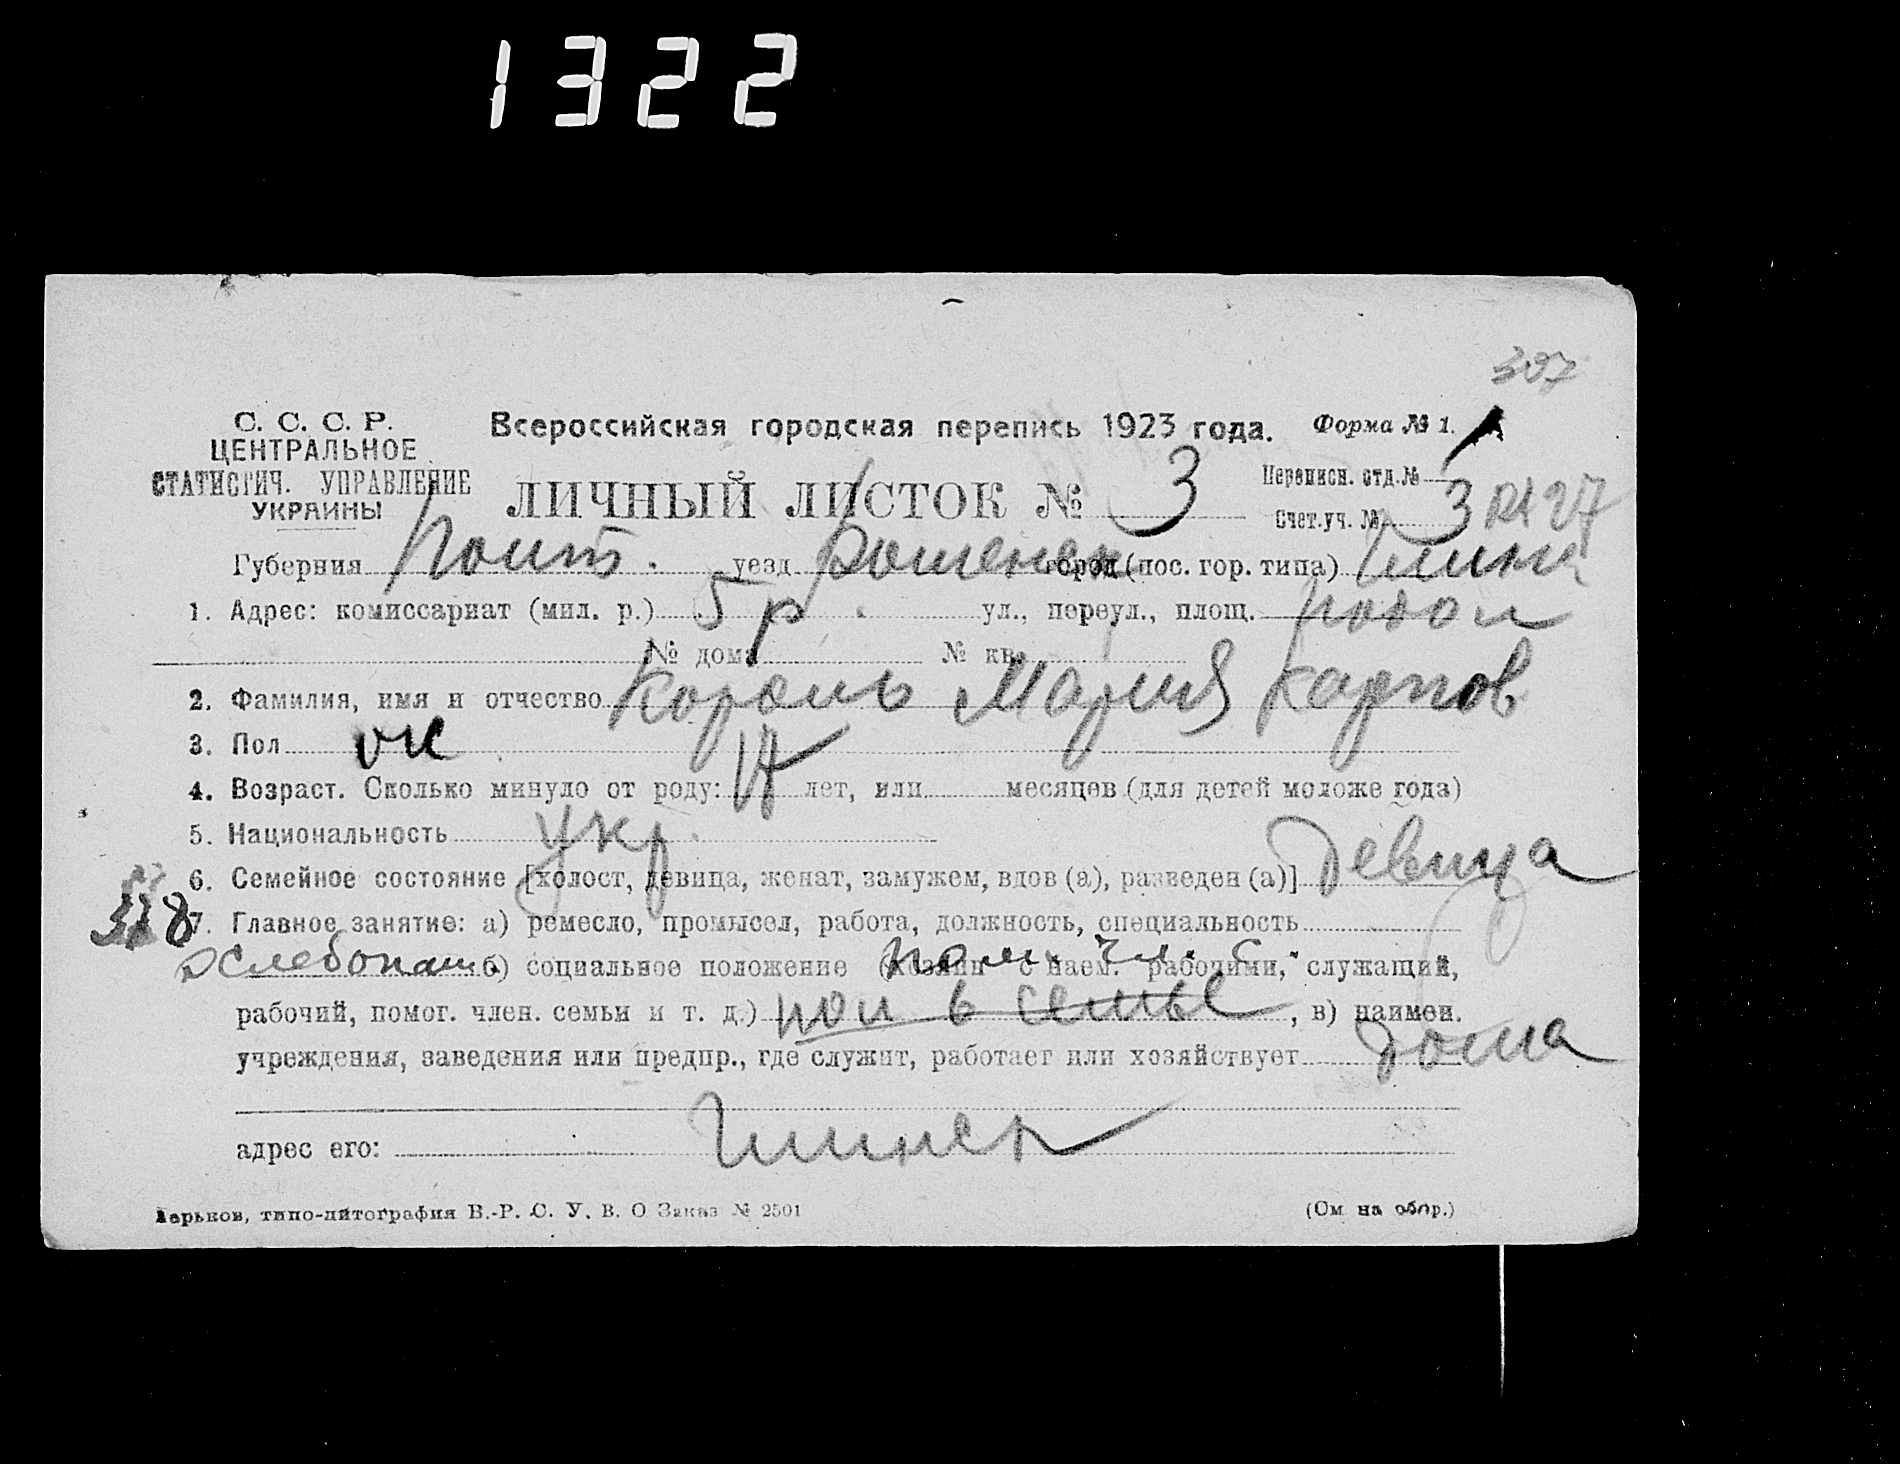 1322
397
С. С. С. Р.
ЦЕНТРАЛЬНОЕ
СТАТИСТИЧ. УПРАВЛЕНИЕ
УКРАИНЫ
Всероссийская городская перепись 1923 года. Форма № 1.
ЛИЧНЫЙ ЛИСТОК № 3
Переписн. отд. № 1
Счет. уч. № 3
Губерния Полт. уезд город (пос. гор. типа)
1. Адрес: комиссариат (мил. р.) 5 р. ул., переул., площ. Подол
№ дома № кв.
2. Фамилия, имя и отчество Король Мария Карпов
3. Пол ж
4. Возраст. Сколько минуло от роду: 17 лет, или месяцев (для детей моложе года)
5. Национальность укр.
6. Семейное состояние [холост, девица, женат, замужем, вдов (а), разведен (а)] девица
7. Главное занятие: а) ремесло, промысел, работа, должность, специальность
хлебопаш. б) социальное положение (хозяин с наем. рабочими, служащий, пом. чл. с.
рабочий, помог. член. семьи и т. д.) пом в семье, в) наимен.
учреждения, заведения или предпр., где служит, работает или хозяйствует дома
адрес его:
Харьков, типо-литография В.-Р. С. У. В. О Заказ № 2501 (См на обор.)